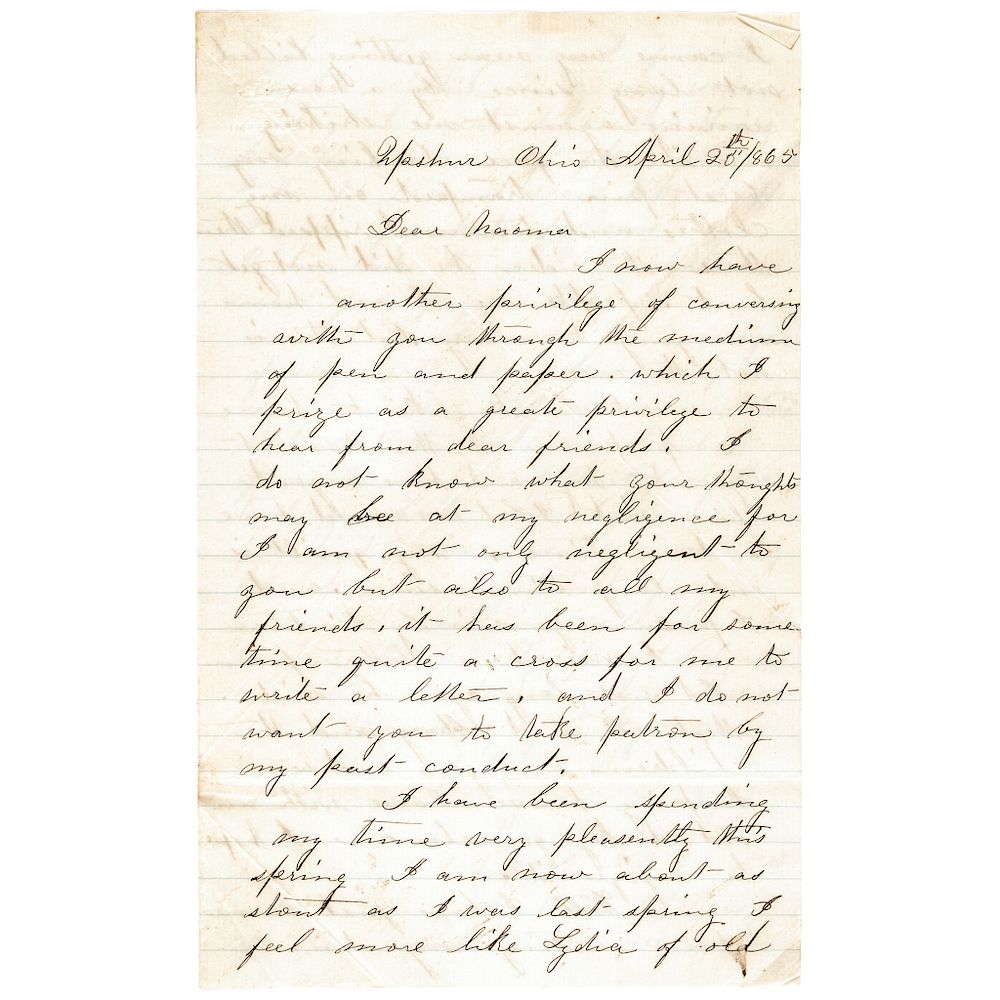 Upshur Ohio April 28th/865
Dear Naoma
I now have
another privilege of conversing
with you through the medium
of pen and paper. which I
prize as a greate privilege to
hear from dear friends. I
do not know what your thoughts
may bee at my negligence for
I am not only negligent to
you but also to all my
friends, it has been for some
time quite a cross for me to
write a letter, and I do not
want you to take patron by
my past conduct.
I have been spending
my time very pleasently this
spring I am now about as
stout as I was last spring I
feel more like Lydia of old